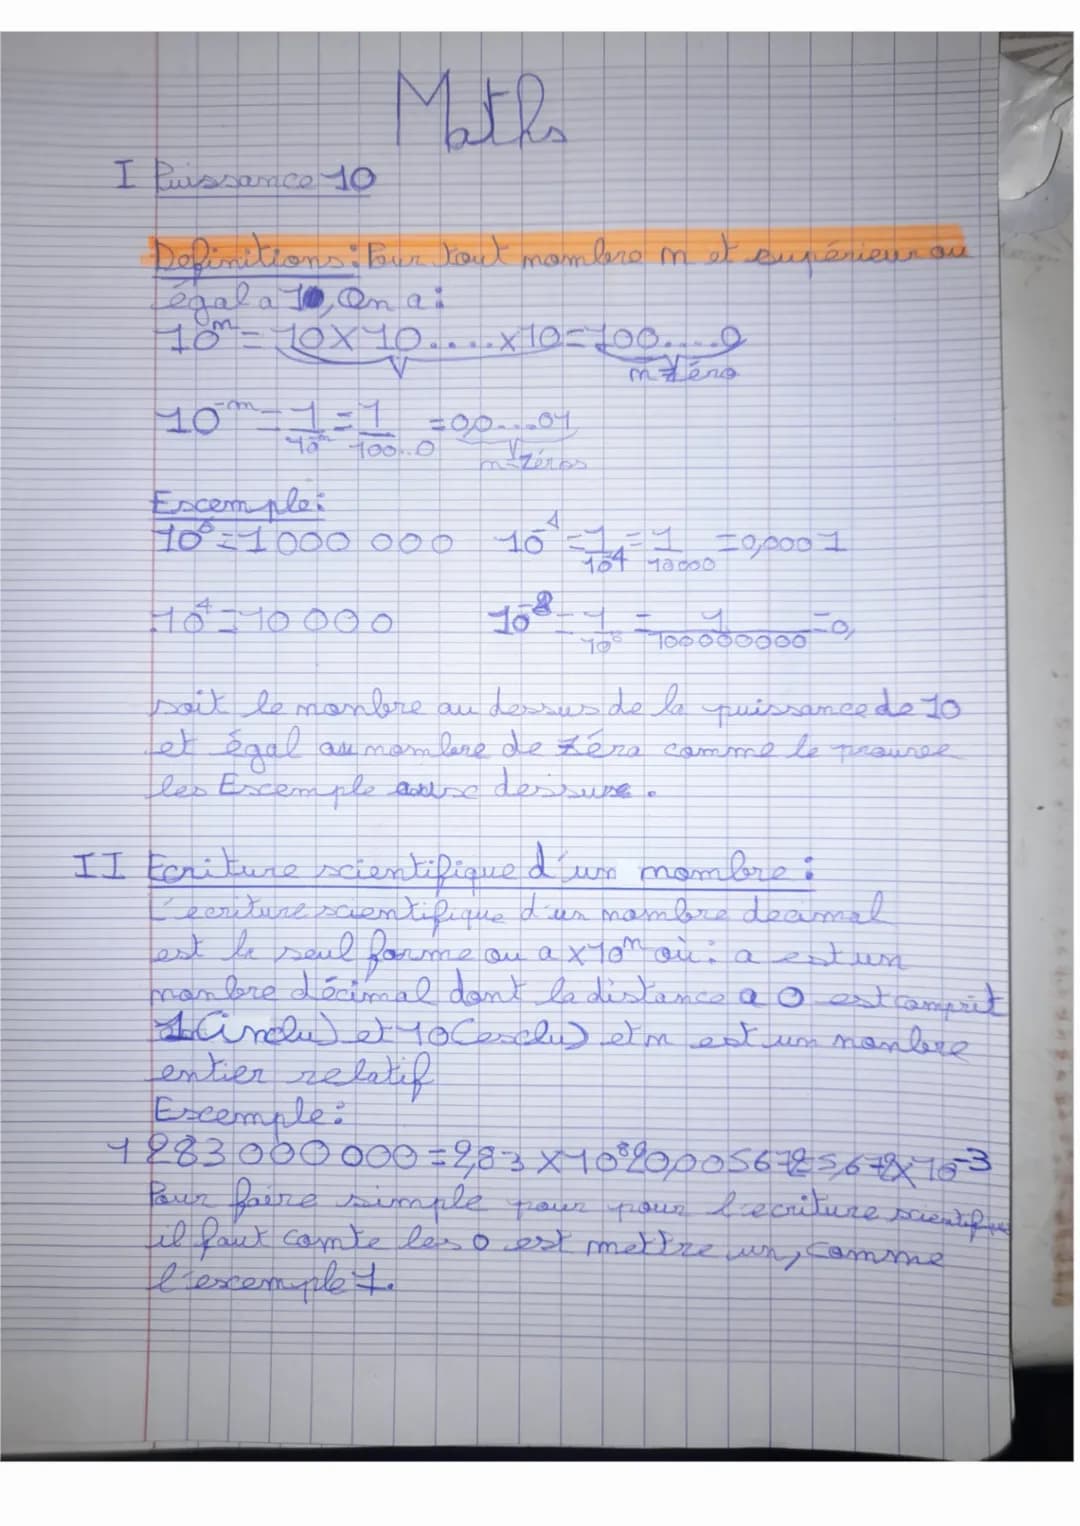 Maths
I Puissance 10
Definitions : Pour tout nombre n et supérieur ou
égal a 10, On a :
10ⁿ = 10 × 10 .... × 10 = 100....0
n zéro
10⁻ⁿ = 1/10ⁿ = 1/100..0 = 0,0....01
n zéros
Escemple :
10⁶ = 1 000 000 10⁻⁴ = 1/10⁴ = 1/10000 = 0,0001
10⁴ = 10 000 10⁻⁸ = 1/10⁸ = 1/100000000 = 0,
soit le nombre au dessus de la puissance de 10
et égal au nombre de zéro comme le prouve
les Escemple dessus.
II Ecriture scientifique d'un nombre :
L'ecriture scientifique d'un nombre decimal
est la seul forme ou a × 10ⁿ où : a est un
nombre décimal dont la distance a 0 est comprit
1 (inclu) et 10 (esclu) et n est un nombre
entier relatif
Escemple :
1 283 000 000 = 2,83 × 10⁸ 2 0,00567 5,67 × 10⁻³
Pour faire simple pour pour l'ecriture scientifique
il faut comte les 0 est mettre un, comme
l'escemple 1.